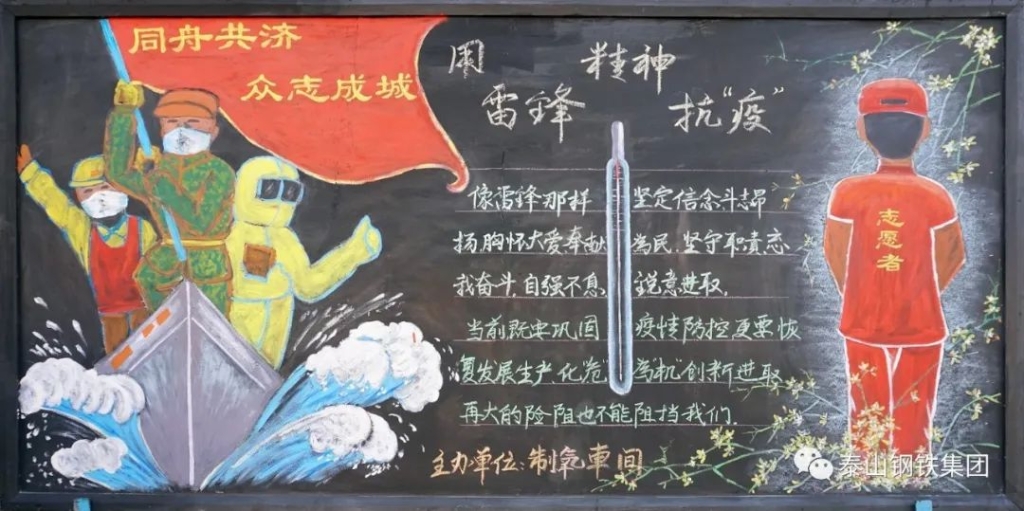 同舟共济
众志成城
用 精神
雷锋 抗"疫"
像雷锋那样 坚定信念斗志昂
扬,胸怀大爱奉献 为民,坚守职责忘
我奋斗,自强不息, 锐意进取,
当前既要巩固 疫情防控更要恢
复发展生产,化"危" 为"机"创新进取
再大的险阻也不能阻挡我们.
主办单位:制氧車间
志愿者
泰山钢铁集团